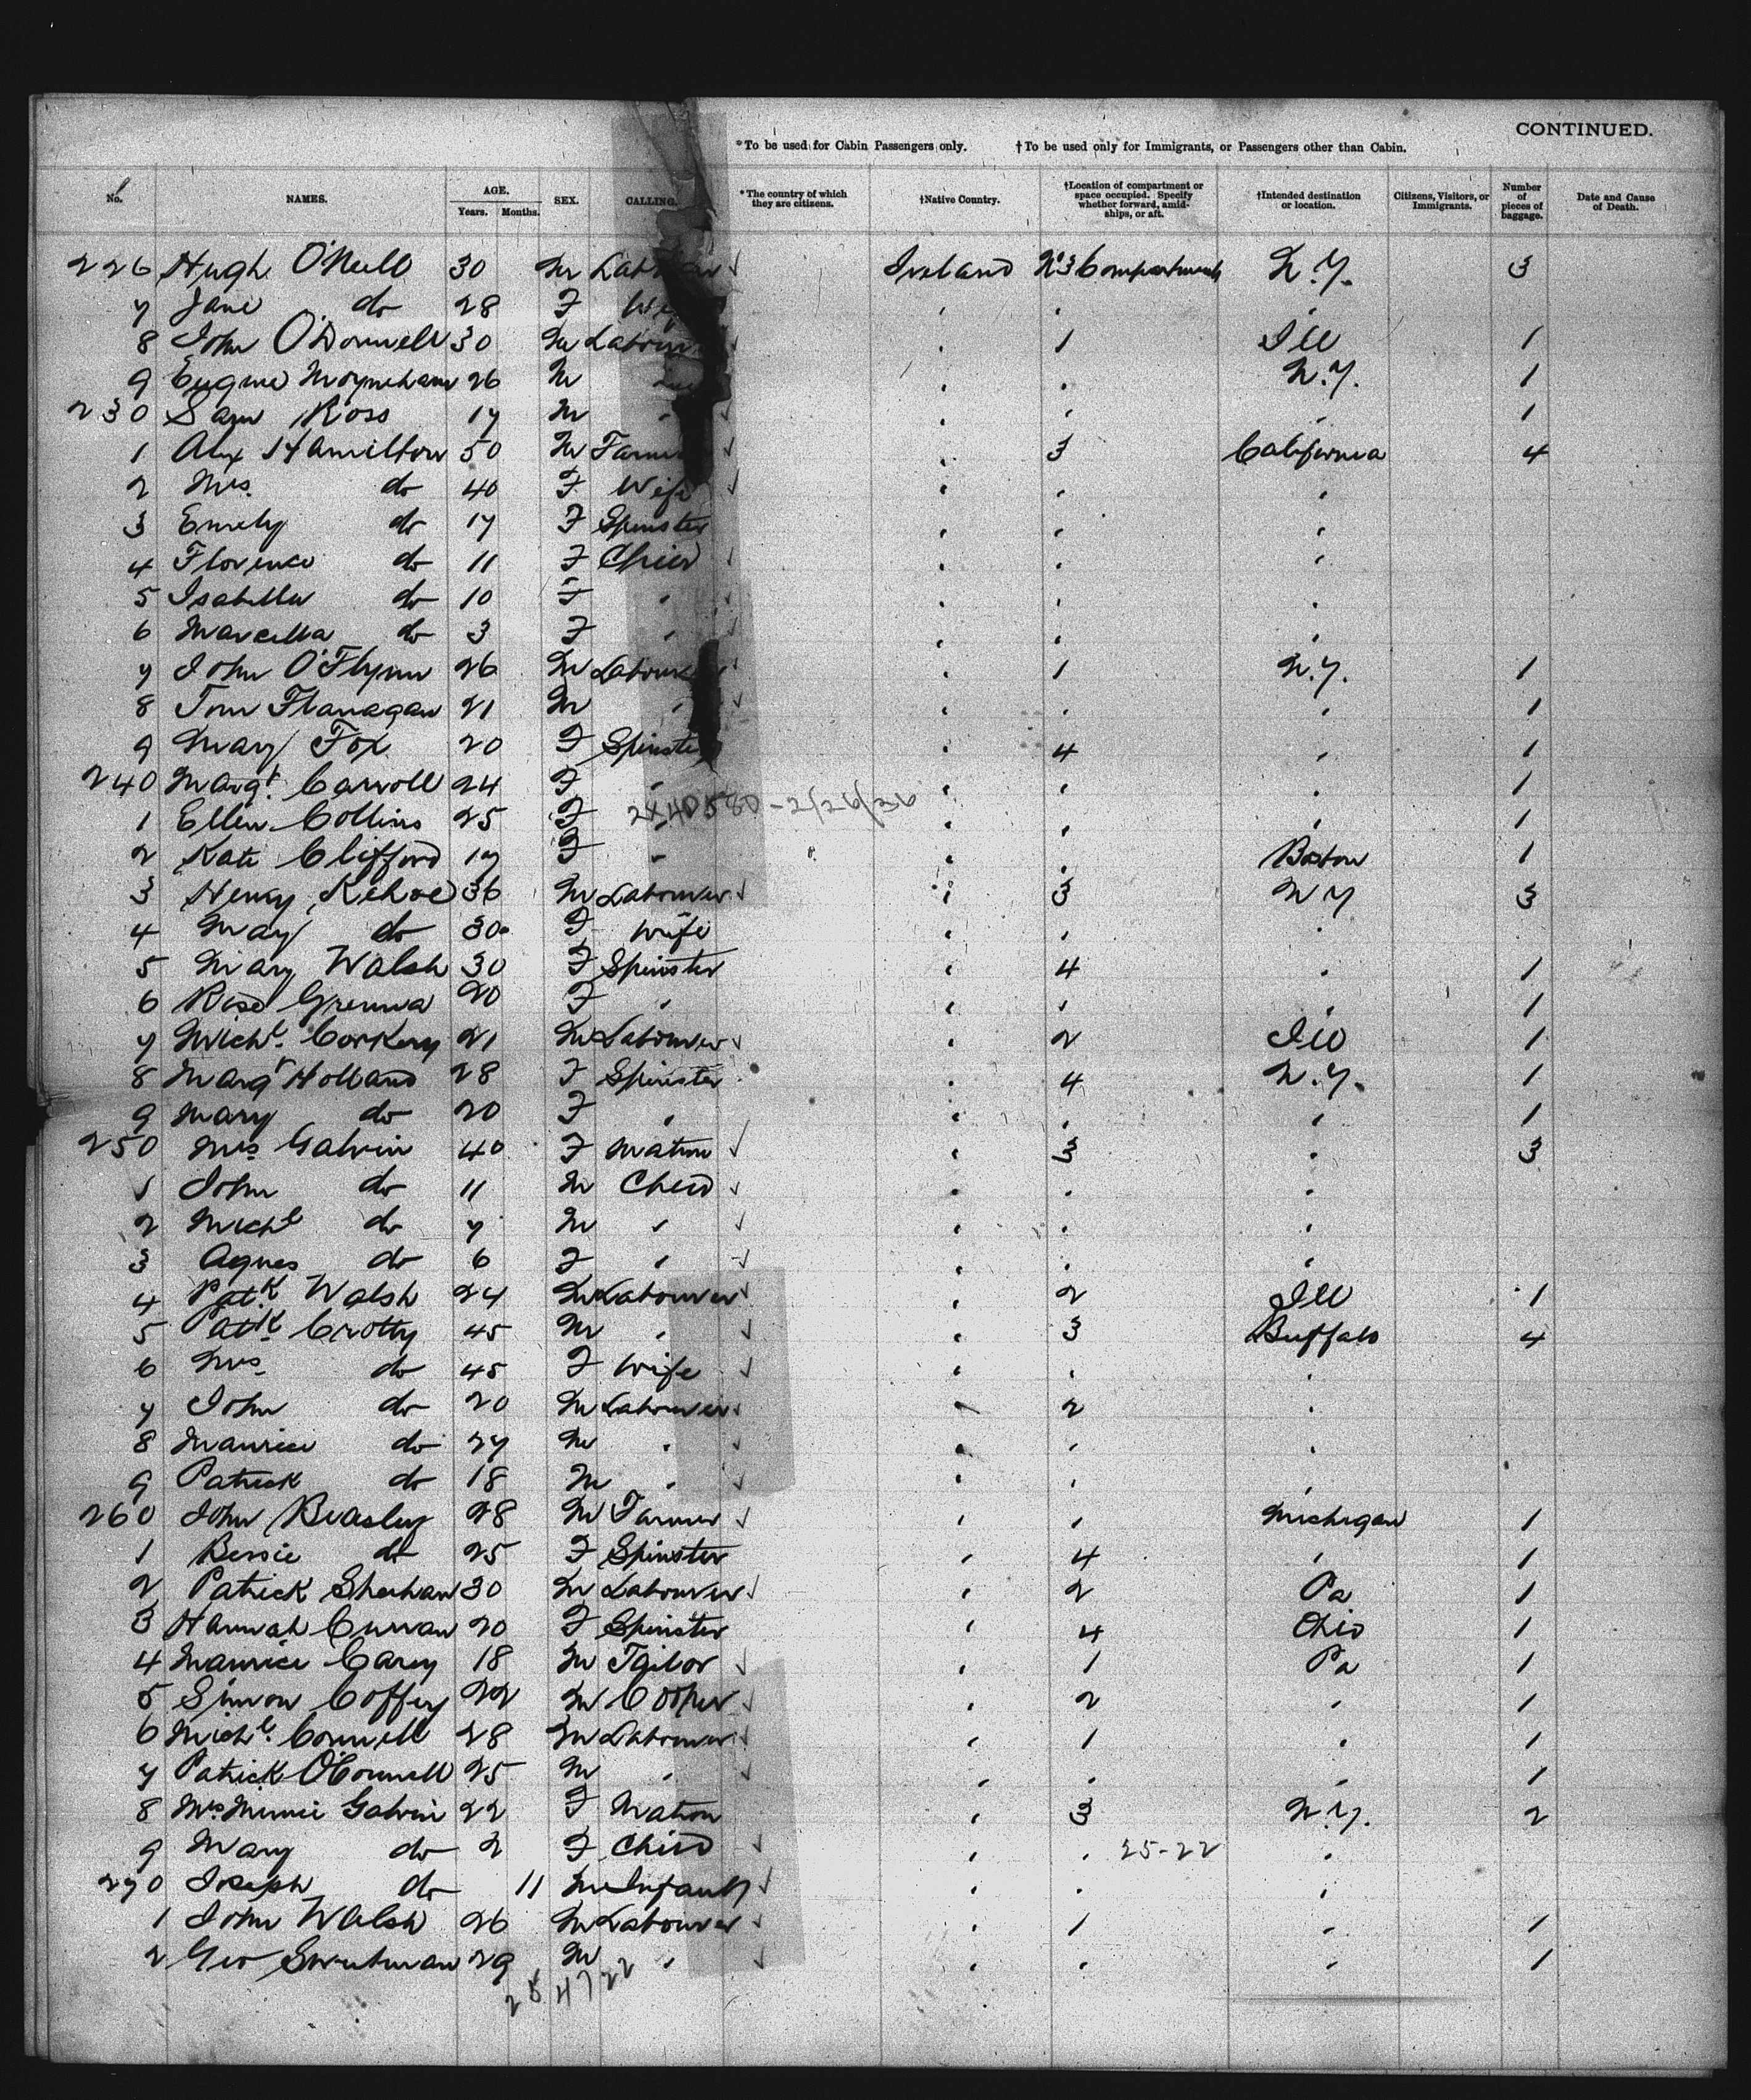 CONTINUED.
*To be used for Cabin Passengers only. †To be used only for Immigrants, or Passengers other than Cabin.
No. NAMES. AGE. Years. Months. SEX. CALLING. *The country of which they are citizens. †Native Country. †Location of compartment or space occupied. Specify whether forward, amidships, or aft. †Intended destination or location. Citizens, Visitors, or Immigrants. Number of pieces of baggage. Date and Cause of Death.
226 Hugh O'Neill 30 M Ireland No 3 Compartment N.Y. 3
7 Jane do 28 F " "
8 John O'Donnell 30 M Labourer " 1 Ill 1
9 Eugene Moynehan 26 M " " N.Y. 1
230 Sam Ross 17 M " " " " 1
1 Alex Hamilton 50 M Farmer " 3 California 4
2 Mrs. do 40 F Wife " " "
3 Emily do 17 F Spinster " " "
4 Florence do 11 F Child " " "
5 Isabella do 10 F " " " "
6 Marcella do 3 F " " " "
7 John O'Flynn 26 M Labourer " 1 N.Y. 1
8 Tom Flanagan 21 M " " " " 1
9 Mary Fox 20 F Spinster " 4 " 1
240 Margt. Carroll 24 F " " " " 1
1 Ellen Collins 25 F " " " " 1
2 Kate Clifford 17 F " " " Boston 1
3 Henry Kehoe 36 M Labourer " 3 N Y 3
4 May do 30 F Wife " " "
5 Mary Walsh 30 F Spinster " 4 " 1
6 Rose 20 F " " " " 1
7 Michl. Corkery 21 M Labourer " 2 Ill 1
8 Margt Holland 28 F Spinster " 4 N.Y. 1
9 Mary do 20 F " " " " 1
250 Mrs Galvin 40 F Matron " 3 " 3
1 John do 11 M Child " " "
2 Michl do 7 M " " " "
3 Agnes do 6 F " " " "
4 Patk Walsh 24 M Labourer " 2 Ill 1
5 Patk Crotty 45 M " " 3 Buffalo 4
6 Mrs do 45 F Wife " " "
7 John do 20 M Labourer " 2 "
8 Maurice do M " " " "
9 Patrick do 18 M " " " "
260 John Beasley 28 M Farmer " " Michigan 1
1 Bessie do 25 F Spinster " 4 " 1
2 Patrick Sheehan 30 M Labourer " 2 Pa 1
3 Hannah Curran 20 F Spinster " 4 Ohio 1
4 Maurice Carey 18 M Tailor " 1 Pa 1
5 Simon Coffey 22 M Cooper " 2 " 1
6 Michl. Connell 28 M Labourer " 1 " 1
7 Patrick O'Connell 25 M " " " " 1
8 Mrs Minnie Galvin 22 F Matron " 3 N.Y. 2
9 Mary do 2 F Child " " 25-22 "
270 Joseph do 11 M Infant " " "
1 John Walsh 26 M Labourer " 1 " 1
2 Geo 29 M " " " " 1